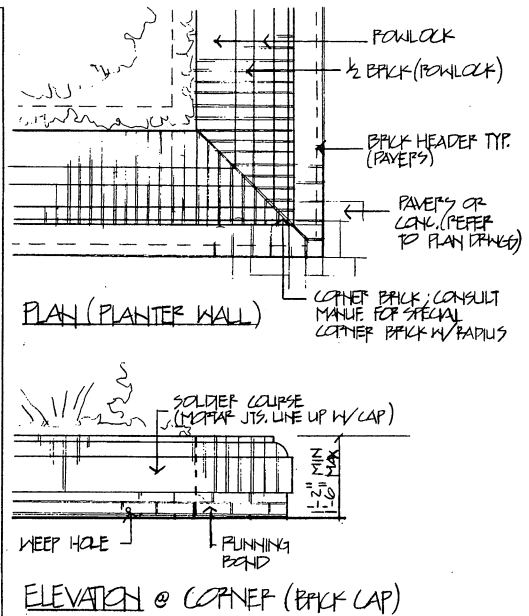 ROWLOCK
½ BRICK (ROWLOCK)
BRICK HEADER TYP.
(PAVERS)
PAVERS OR
CONC. (REFER
TO PLAN DRWGS)
CORNER BRICK; CONSULT
MANUF. FOR SPECIAL
CORNER BRICK W/ RADIUS
PLAN (PLANTER WALL)
SOLDIER COURSE
(MORTAR JTS. LINE UP W/ CAP)
1'-2" MIN
1'-6" MAX
WEEP HOLE
RUNNING
BOND
ELEVATION @ CORNER (BRICK CAP)